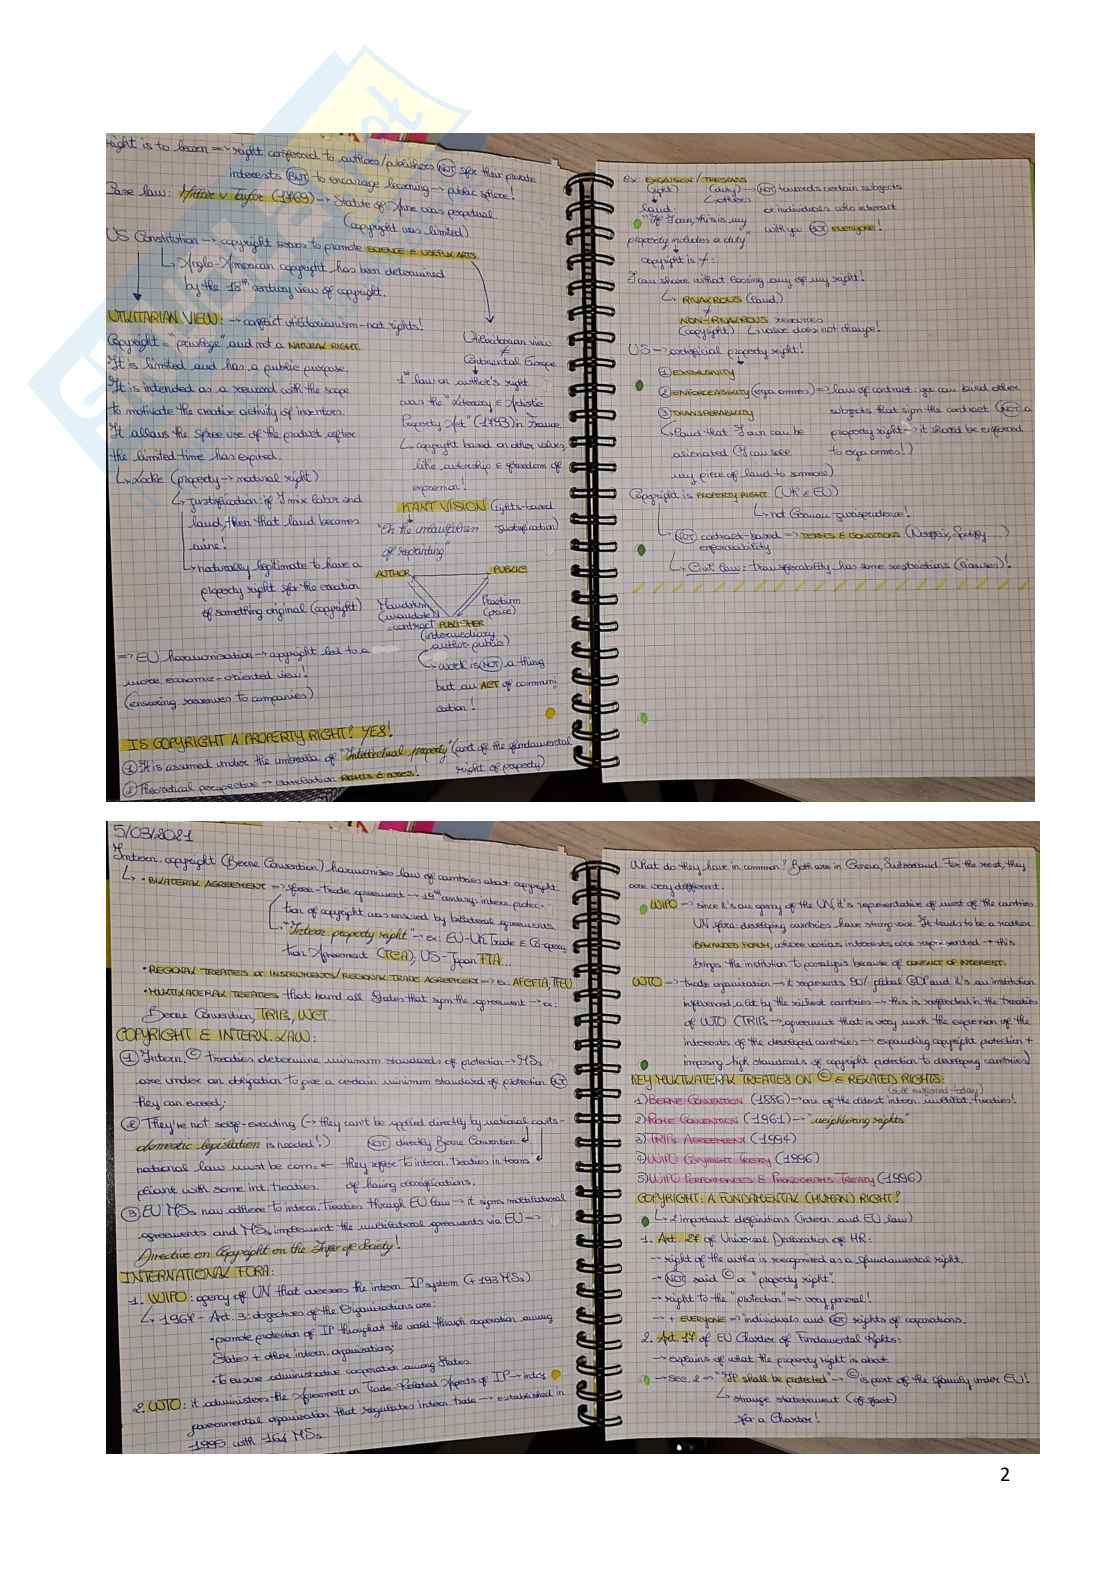 right is to learn => right conferred to authors/publishers NOT for their private
interests BUT to encourage learning → public sphere!
Case law: Millar v Taylor (1769) → Statute of Anne was perpetual
(copyright was limited)
US Constitution → copyright serves to promote SCIENCE & USEFUL ARTS
↳ Anglo-American copyright has been determined
by the 18th century view of copyright.
UTILITARIAN VIEW: → conflict utilitarianism-nat rights!
Copyright = "privilege" and not a NATURAL RIGHT.
It is limited and has a public purpose.
It is intended as a reward with the scope
to motivate the creative activity of inventors.
It allows the free use of the product after
the limited time has expired.
↳ Locke (property → natural right)
↳ justification: if I mix labor and
land, then that land becomes
mine!
↳ naturally legitimate to have a
property right for the creation
of something original (copyright)
=> EU harmonisation → copyright led to a
more economic-oriented view!
(ensuring revenues to companies)
Utilitarian view
≠
Continental Europe
1st law on author's right
was the "Literary & Artistic
Property Act" (1793) in France.
↳ copyright based on other values,
like authorship & freedom of
expression!
KANT VISION (rights-based
justification)
"On the unlawfulness
of reprinting"
AUTHOR
PUBLIC
Mandatum
(mandate)
contract
Praetium
(price)
PUBLISHER
(intermediary
author-public)
↳ work is NOT a thing
but an ACT of communi
cation!
IS COPYRIGHT A PROPERTY RIGHT? YES!
① It is assumed under the umbrella of "Intellectual property" (part of the fundamental
right of property)
② Theoretical perspective → correlation RIGHTS & DUTIES!
ex: EXCLUSION / TRESPASS
(right) (duty) → NOT towards certain subjects
↳ others
or individuals who interact
with you BUT EVERYONE!
Land:
"If I own, this is my
property includes a duty"
copyright is ≠:
I can share without loosing any of my right!
↳ RIVALROUS (land)
≠
NON-RIVALROUS resources
(copyright) ↳ value does not change!
US → artificial property right!
① EXCLUSIVITY
② ENFORCEABILITY (erga omnes) => law of contract: you can bind other
subjects that sign the contract (NOT a
property right → it should be enforced
to erga omnes!)
③ TRANSFERABILITY
↳ Land that I own can be
alienated (I can sell
my piece of land to someone)
Copyright is PROPERTY RIGHT (UK & EU)
↳ not German jurisprudence!
↳ NOT contract-based → TERMS & CONDITIONS (Spotify...)
enforceability
↳ Civil law: transferability has some restrictions
5/03/2021
Intern. copyright (Berne Convention) harmonises law of countries about copyright.
↳ • BILATERAL AGREEMENT → free-trade agreement → 19th century: intern. protec-
tion of copyright was ensured by bilateral agreements
↳ "Intern. property right" → ex: EU-UK Trade & Coopera
tion Agreement (TCA), US-Japan FTA...
• REGIONAL TREATIES or INSTRUMENTS/REGIONAL TRADE AGREEMENT → ex. AFCFTA, TFEU
• MULTILATERAL TREATIES that bound all States that sign the agreement → ex:
Berne Convention, TRIPs, WCT.
COPYRIGHT & INTERN. LAW:
① Intern. © treaties determine minimum standards of protection → MSs
are under an obligation to give a certain minimum standard of protection BUT
they can exceed;
② They're not self-executing (→ they can't be applied directly by national courts-
domestic legislation is needed!) NOT directly Berne Convention.
national law must be com- ← they refer to intern. treaties in terms
pliant with some int. treaties. of having clarifications.
③ EU MSs now adhere to intern. treaties through EU law → it signs multilateral
agreements and MSs implement the multilateral agreements via EU →
Directive on Copyright on the Infor. of society!
INTERNATIONAL FORA:
1. WIPO: agency of UN that oversees the intern. IP system (+ 193 MSs)
↳ 1967 - Art. 3: objectives of the Organisations are:
• promote protection of IP throughout the world through cooperation among
States + other intern. organisations;
• to ensure administrative cooperation among States.
2. WTO: it administers the Agreement on Trade-Related Aspects of IP → inter
governmental organisation that regulates intern. trade → established in
1995 with 164 MSs
What do they have in common? Both are in Geneva, Switzerland. For the rest, they
are very different.
WIPO → since it's an agency of the UN it's representative of most of the countries.
UN fora: developing countries have strong role. It tends to be a rather
BALANCED FORUM, where various interests are represented → this
brings the institution to paralysis because of CONFLICT OF INTEREST.
WTO → trade organisation → it represents 90% global GDP and it's an institution
influenced a lot by the richest countries → this is reflected in the treaties
of WTO (TRIPs → agreement that is very much the expression of the
interests of the developed countries → expanding copyright protection +
imposing high standards of copyright protection to developing countries)
KEY MULTILATERAL TREATIES ON © & RELATED RIGHTS:
1) BERNE CONVENTION (1886) → one of the oldest intern. multilat. treaties!
2) ROME CONVENTION (1961) → "neighboring rights"
3) TRIPs AGREEMENT (1994)
4) WIPO COPYRIGHT TREATY (1996)
5) WIPO PERFORMANCES & PHONOGRAMS TREATY (1996)
COPYRIGHT: A FUNDAMENTAL (HUMAN) RIGHT?
↳ 2 important definitions (intern. and EU law)
1. Art. 27 of Universal Declaration of HR:
→ right of the author is recognised as a fundamental right.
→ NOT said © a "property right".
→ right to the "protection" → very general!
→ + EVERYONE → individuals and NOT rights of corporations.
2. Art. 17 of EU Charter of Fundamental Rights:
→ explains of what the property right is about
→ sec. 2 → "IP shall be protected" → © is part of the family under EU!
↳ strange statement (of fact)
for a Charter!
2